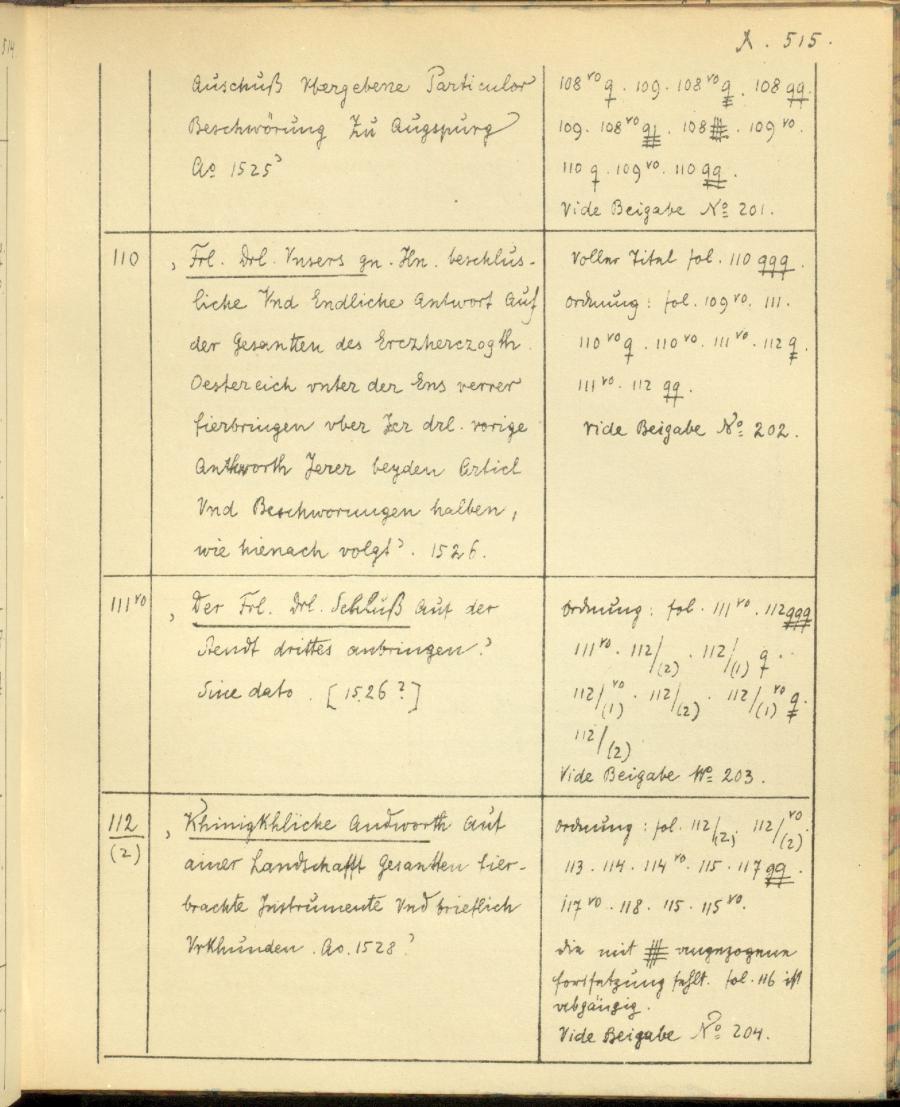 A. 515.
Auschuß Vbergebene Particular
Beschwörung Zu Augspurg
Ao 1525
108 vo q . 109 . 108 vo q . 108 qq .
109 . 108 vo qq . 108 . 109 vo .
110 q . 109 vo . 110 qq .
Vide Beigabe No 201.
110
Frl. Drl. Vnsers gn. Hn. beschlus-
liche Vnd Endliche Antwort Auf
der Gesantten des Erczherczogth.
Oestereich vnter der Ens verrer
fierbringen vber Jer drl. vorige
Antworth Jerer beyden Articl
Vnd Beschworungen halben,
wie hienach volgt . 1526.
Voller Titel fol. 110 qqq .
Ordnung : fol. 109 vo . 111 .
110 vo q . 110 vo . 111 vo . 112 q .
111 vo . 112 qq .
Vide Beigabe No 202.
111 vo
Der Frl. Drl. Schluß Auf der
Stendt drittes anbringen .
Sine dato . [1526 ?]
Ordnung : fol. 111 vo . 112 qqq
111 vo . 112/(2) . 112/(1) q .
112/(1) vo . 112/(2) . 112/(1) vo q .
112/(2)
Vide Beigabe No 203.
112/(2)
Khinigkhliche Andworth Auf
ainer Landschafft Gesantten fier-
brachte Instrumente Vnd brieflich
Vrkhunden . Ao. 1528
Ordnung : fol. 112/(2) . 112/(2) vo .
113 . 114 . 114 vo . 115 . 117 qq .
117 vo . 118 . 115 . 115 vo .
Die mit angezogene
Fortsetzung fehlt. fol. 116 ist
abgängig .
Vide Beigabe No 204.